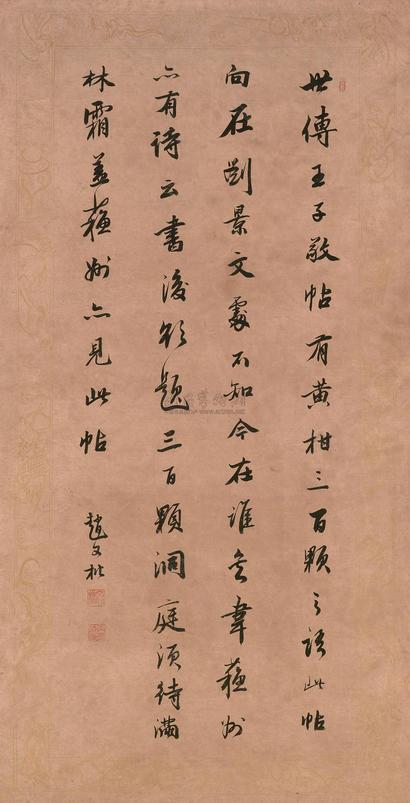 世傳王子敬帖有黄柑三百顆之語此帖
向在劉景文處不知今在誰家韋蘇州
亦有詩云書後欲題三百顆洞庭須待滿
林霜蓋蘇州亦見此帖
趙文楷